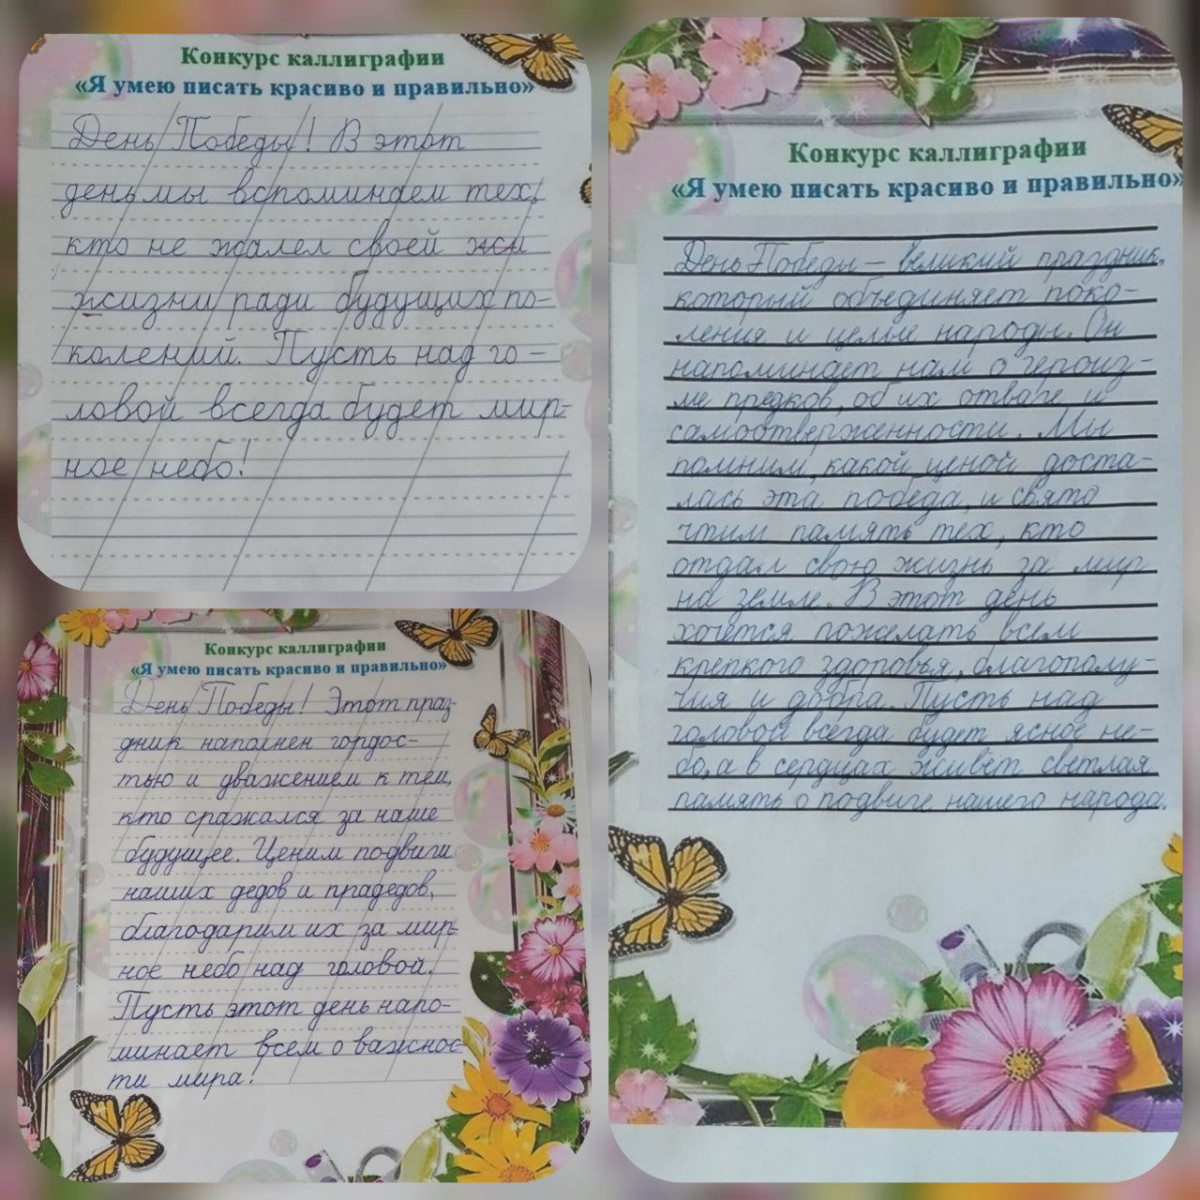 Конкурс каллиграфии
«Я умею писать красиво и правильно»
День Победы! В этот
день мы вспоминаем тех,
кто не жалел своей жи
жизни ради будущих по-
колений. Пусть над го-
ловой всегда будет мир-
ное небо!
Конкурс каллиграфии
«Я умею писать красиво и правильно»
День Победы! Этот праз-
дник наполнен гордос-
тью и уважением к тем,
кто сражался за наше
будущее. Ценим подвиги
наших дедов и прадедов,
благодарим их за мир-
ное небо над головой.
Пусть этот день напо-
минает всем о важнос-
ти мира!
Конкурс каллиграфии
«Я умею писать красиво и правильно»
День Победы – великий праздник,
который объединяет поко-
ления и целые народы. Он
напоминает нам о героиз-
ме предков, об их отваге и
самоотверженности. Мы
помним, какой ценой доста-
лась эта победа, и свято
чтим память тех, кто
отдал свою жизнь за мир
на земле. В этот день
хочется пожелать всем
крепкого здоровья, благополу-
чия и добра. Пусть над
головой всегда будет ясное не-
бо, а в сердцах живёт светлая
память о подвиге нашего народа.